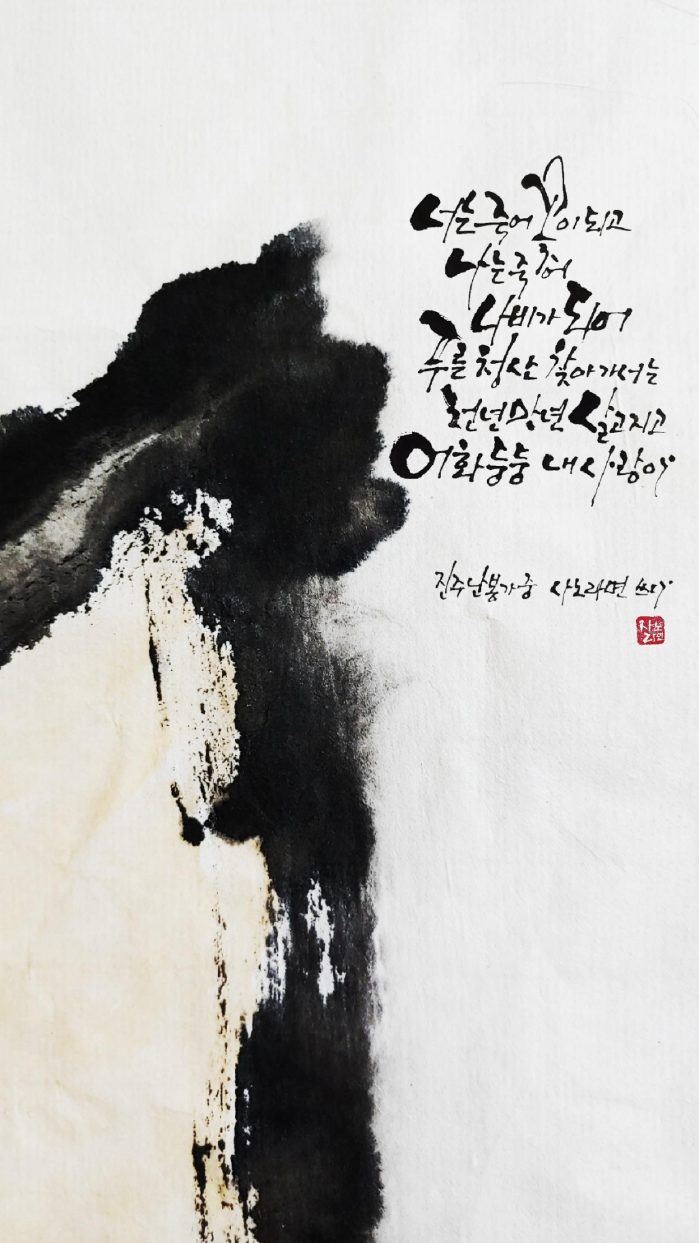 너는 죽어 꽃이 되고
나는 죽어
나비가 되어
푸른 청산 찾아가서는
천년만년 살고지고
어화둥둥 내 사랑아
진주난봉가 중 사노라면 쓰다